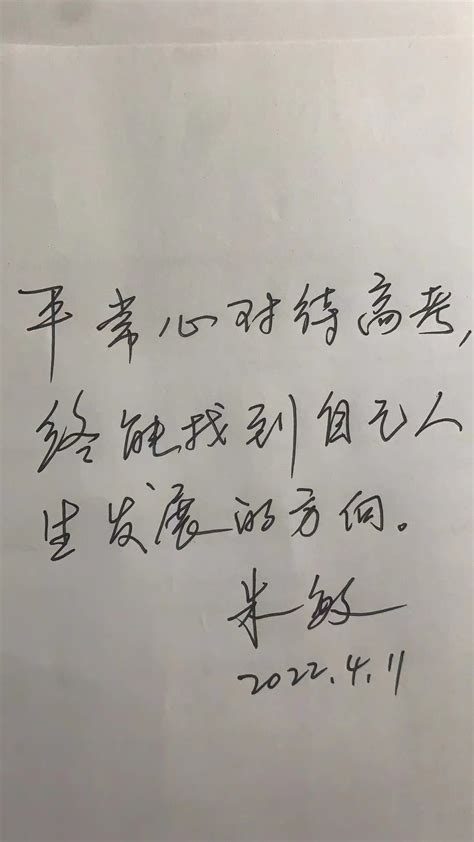 平常心对待高考，
终能找到自己人
生发展的方向。
米敏
2022.4.11